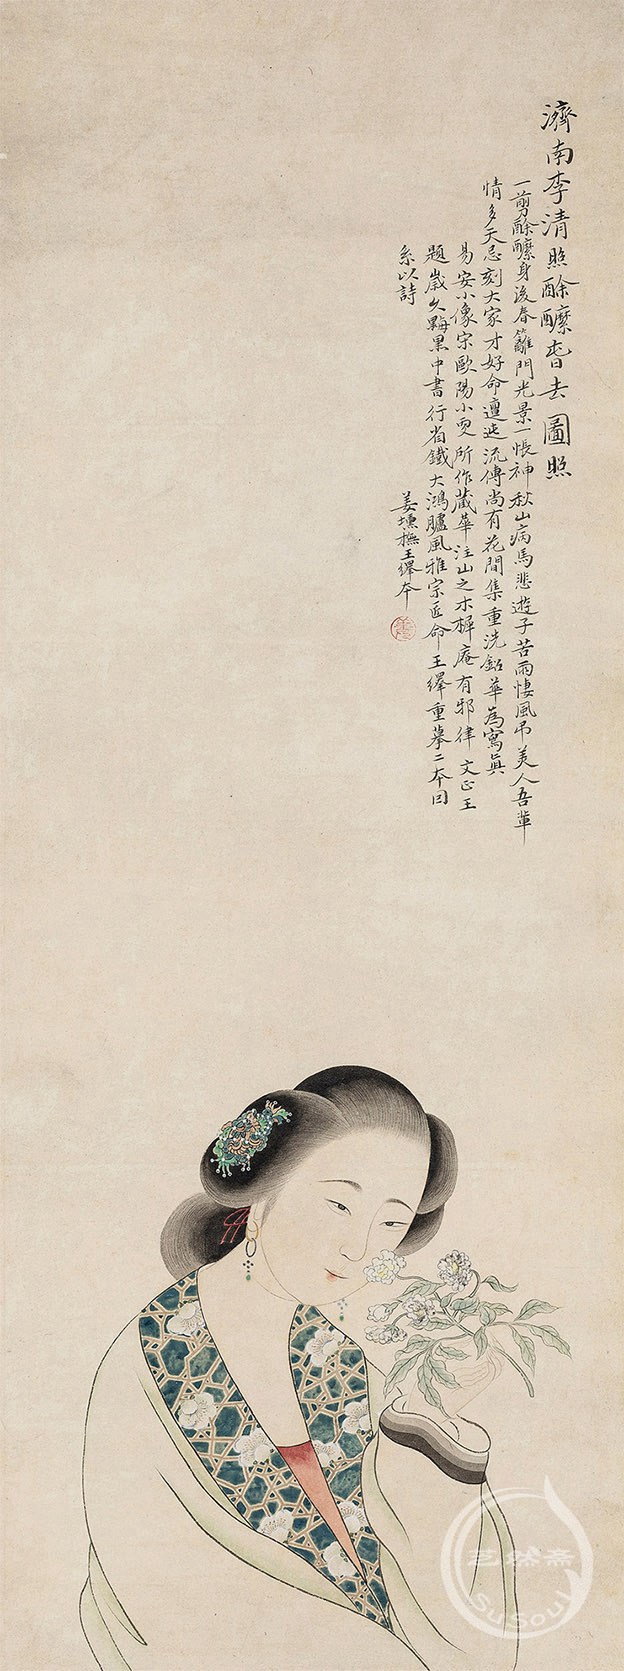 濟南李清照酴醾春去圖照
一剪酴醾身後春籬門光景一悵神秋山病馬悲遊子苦雨悽風吊美人吾輩
情多天忌刻大家才好命邅迍流傳尚有花間集重洗鉛華為寫真
易安小像宋歐陽小雯所作藏華注山之木樨庵有邪律文正王
題歲久黴黑中書行省鐵大鴻臚風雅宗匠命王繹重摹二本因
系以詩
姜壎橅王繹本
芝然斋
SuSoul